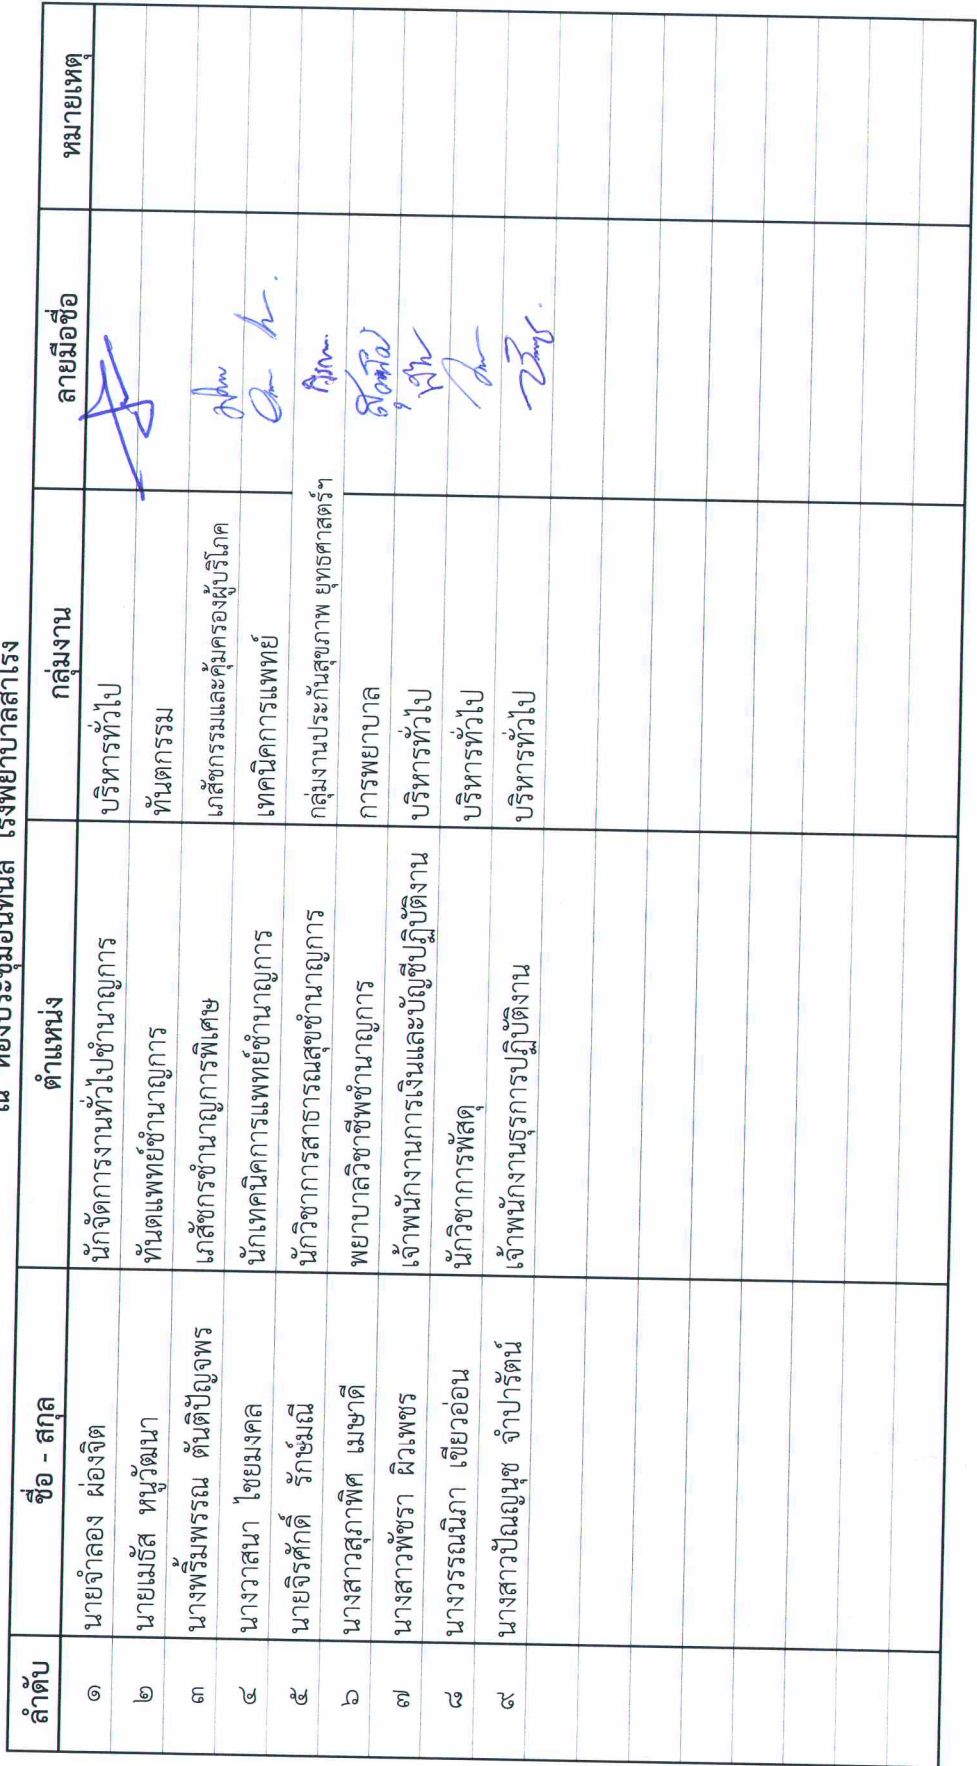 ณ ห้องประชุมอินทนิล โรงพยาบาลสำโรง
ลำดับ ชื่อ - สกุล ตำแหน่ง กลุ่มงาน ลายมือชื่อ หมายเหตุ
๑ นายจำลอง ผ่องจิต นักจัดการงานทั่วไปชำนาญการ บริหารทั่วไป
๒ นายเมธัส หนูวัฒนา ทันตแพทย์ชำนาญการ ทันตกรรม
๓ นางพริ้มพรรณ ตันติปัญจพร เภสัชกรชำนาญการพิเศษ เภสัชกรรมและคุ้มครองผู้บริโภค
๔ นางวาสนา ไชยมงคล นักเทคนิคการแพทย์ชำนาญการ เทคนิคการแพทย์
๕ นายจิรศักดิ์ รักษ์มณี นักวิชาการสาธารณสุขชำนาญการ กลุ่มงานประกันสุขภาพ ยุทธศาสตร์ฯ
๖ นางสาวสุภาพิศ เมษาดี พยาบาลวิชาชีพชำนาญการ การพยาบาล
๗ นางสาวพัชรา ผิวเพชร เจ้าพนักงานการเงินและบัญชีปฏิบัติงาน บริหารทั่วไป
๘ นางวรรณนิภา เขียวอ่อน นักวิชาการพัสดุ บริหารทั่วไป
๙ นางสาวปัณญนุช จำปารัตน์ เจ้าพนักงานธุรการปฏิบัติงาน บริหารทั่วไป